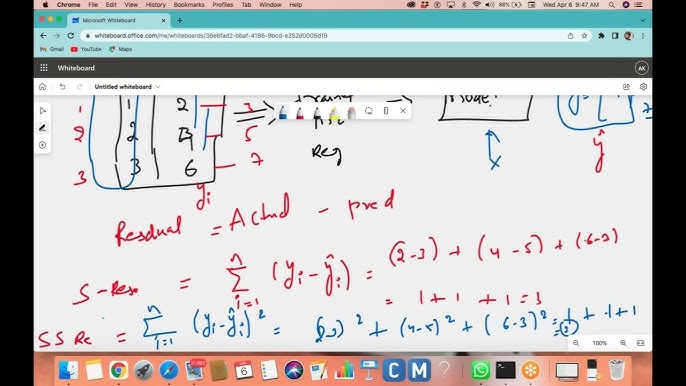 Chrome File Edit View History Bookmarks Profiles Tab Window Help 86% Wed Apr 6 9:47 AM
Microsoft Whiteboard
whiteboard.office.com/me/whiteboards/36e6fad2-bbaf-4186-9bcd-e252d0005d19
Gmail YouTube Maps
Whiteboard AK
Untitled whiteboard
1 1 2 3
2 2 5
3 3 6 7
Reg x ŷ
yi
Residual = Actual - pred
S-Res = n∑i=1 (yi - ŷi) = (2-3) + (4-5) + (6-3)
= 1 + 1 + 1 = 3
SS Re = n∑i=1 (yi - ŷi)² = (2-3)² + (4-5)² + (6-3)² = 1 + 1 + 1
100%